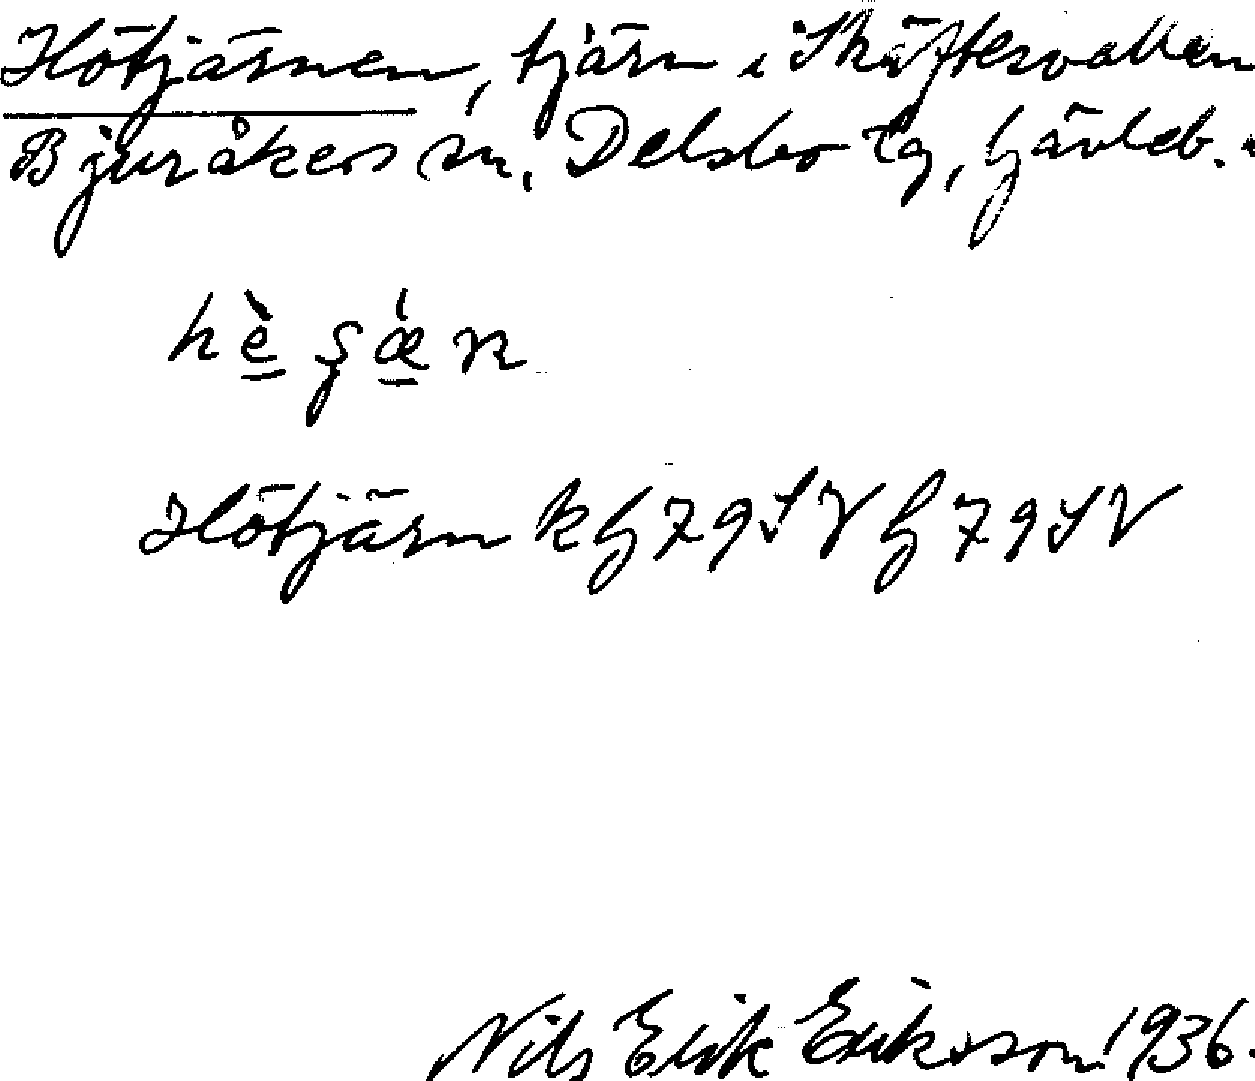 Hötjärnen, tjärn i Skäftesvallen
Bjuråkers sn, Delsbo tg, Gävleb.
Hötjärn k G 79 SV G 79 SV
Nils Erik Eriksson 1936.